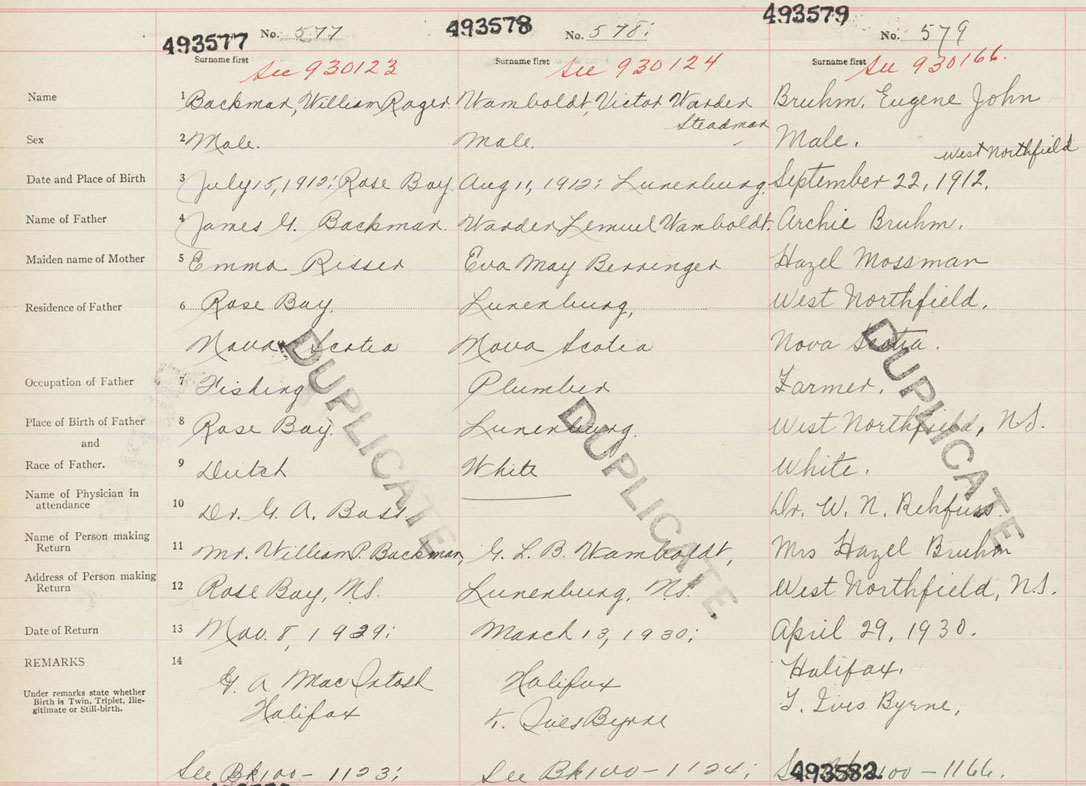 493577 No. 577 493578 No. 578; 493579 No. 579
Surname first Surname first Surname first
See 930123 See 930124 See 930166.
Name 1 Backman, William Roger Wamboldt, Victor Warden Steadman Bruhm, Eugene John
Sex 2 Male. Male. Male.
West Northfield
Date and Place of Birth 3 July 15, 1912; Rose Bay. Aug 11, 1912; Lunenburg. September 22, 1912.
Name of Father 4 James G. Backman. Warden Lemuel Wamboldt. Archie Bruhm.
Maiden name of Mother 5 Emma Risser Eva May Berringer Hazel Mossman
Residence of Father 6 Rose Bay. Lunenburg, West Northfield.
Nova Scotia Nova Scotia Nova Scotia.
Occupation of Father 7 Fishing Plumber Farmer.
Place of Birth of Father 8 Rose Bay. Lunenburg. West Northfield, N.S.
and
Race of Father. 9 Dutch White White.
Name of Physician in
attendance 10 Dr. G. A. Dr. W. N. Rehfuss.
Name of Person making
Return 11 Mr. William P. Backman, G. L. B. Wamboldt, Mrs Hazel Bruhm
Address of Person making
Return 12 Rose Bay, N.S. Lunenburg, N.S. West Northfield, N.S.
Date of Return 13 Nov. 8, 1929; March 13, 1930; April 29, 1930.
REMARKS 14 G. A. MacIntosh Halifax Halifax.
Under remarks state whether
Birth is Twin, Triplet, Ille-
gitimate or Still-birth.
Halifax Ives Byrne T. Ives Byrne,
See Bk100-1123; See Bk100-1124; 100-1166.
493582
DUPLICATE DUPLICATE. DUPLICATE